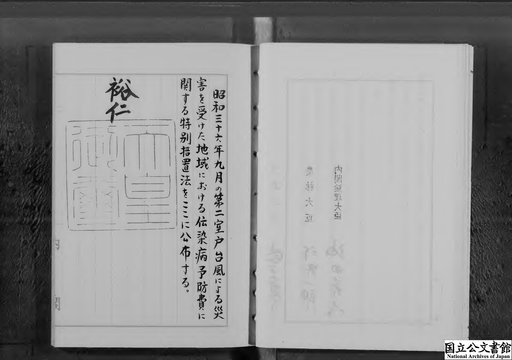 昭和三十六年九月の第二室戸台風による災
害を受けた地域における伝染病予防費に
関する特別措置法をここに公布する。
裕仁
天皇
御璽
内閣総理大臣
農林大臣
国立公文書館
National Archives of Japan